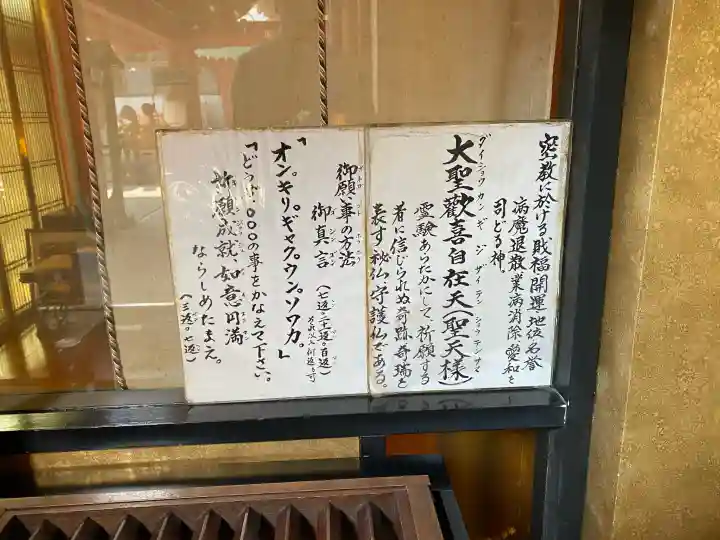 密教に於ける財福開運、地位名誉
病魔退散業病消除、愛和を
司どる神。
ダイショウカンギジザイテンショウテンサマ
大聖歓喜自在天(聖天様)
霊験あらたかにして、祈願する
者に信じられぬ奇跡奇瑞を
表す秘仏守護仏である。
御願い事の方法
御真言(七返・二十一返・百返)
それ以上何返も可
「オン。キリ。ギャク。ウン。ソワカ。」
「どうか〇〇〇の事をかなえて下さい。
祈願成就、如意円満
ならしめたまえ。
(三返。七返)